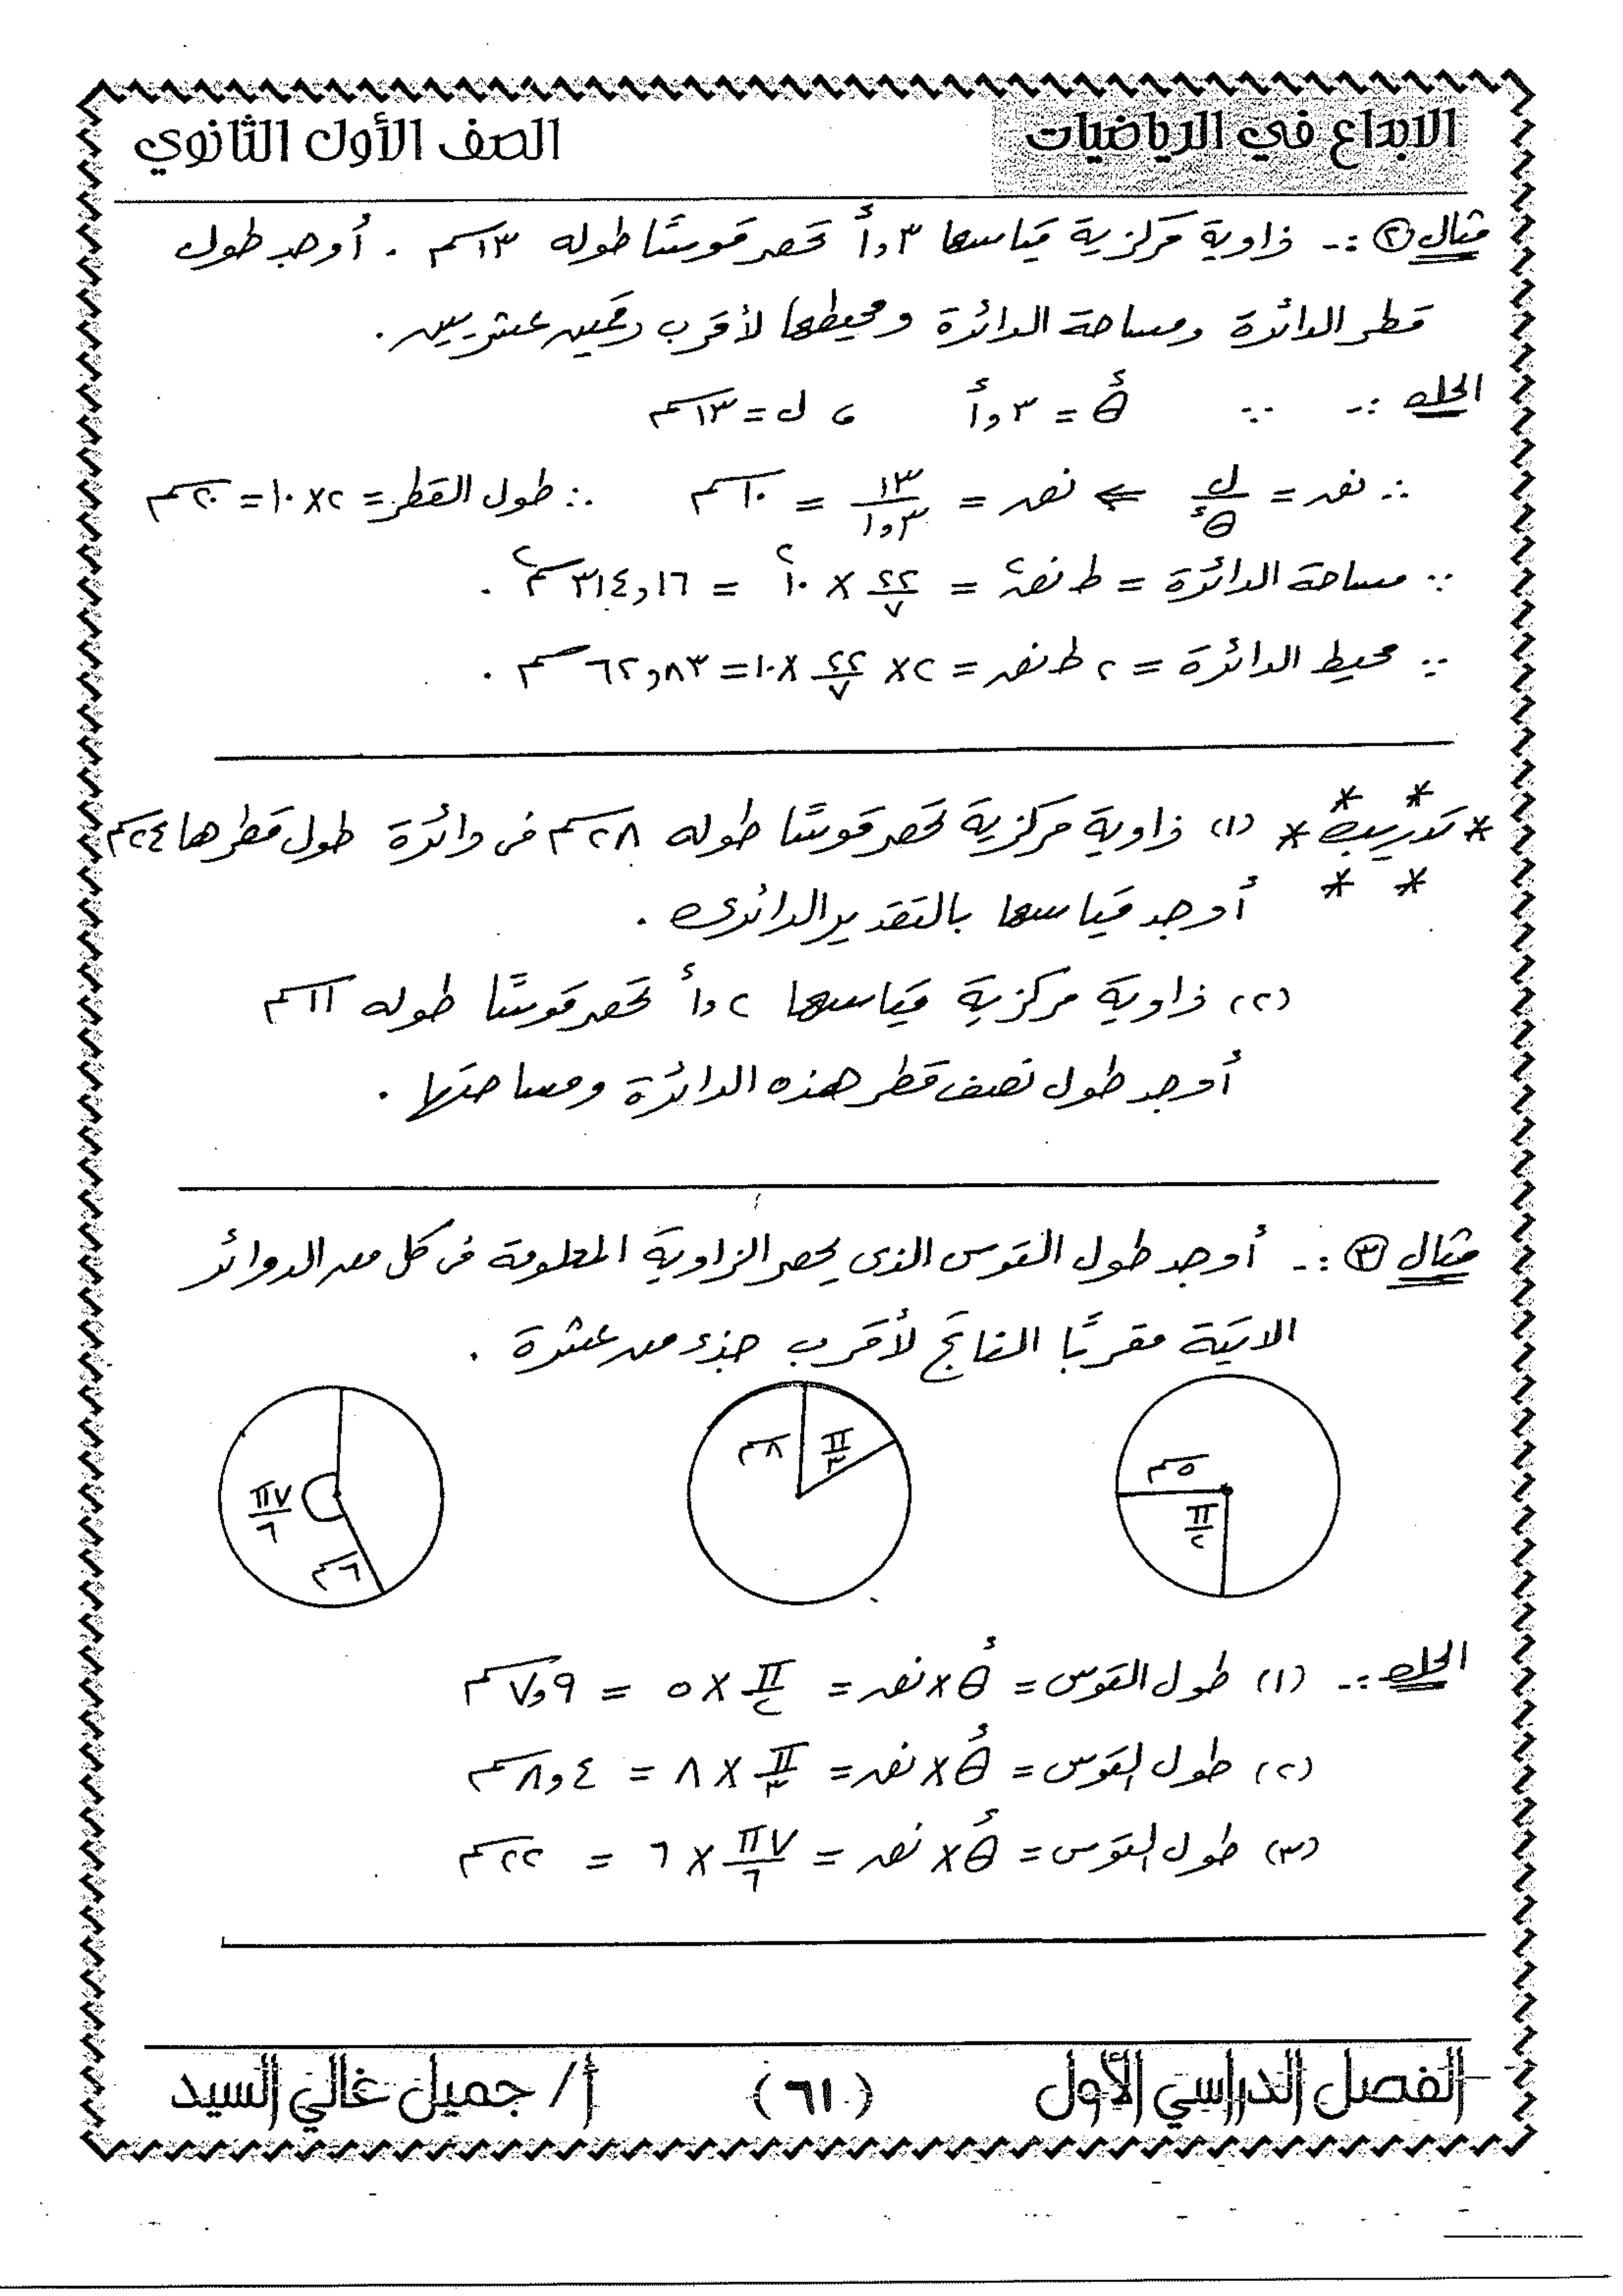 الابداع في الرياضيات
الصف الأول الثانوي
مثال (٢) :- زاوية مركزية قياسها ١,٣ء تحصر قوسًا طوله ١٣سم . أوجد طول
قطر الدائرة ومساحة الدائرة ومحيطها لأقرب رقمين عشريين .
الحل :- ∵ θء = ١,٣ء ، ل = ١٣سم
∴ نق = ل/θء ⇐ نق = ١٣/١,٣ = ١٠سم ∴ طول القطر = ٢×١٠ = ٢٠سم
∵ مساحة الدائرة = ط نق٢ = ٢٢/٧ × ١٠٢ = ٣١٤,١٦سم٢ .
∵ محيط الدائرة = ٢ ط نق = ٢× ٢٢/٧ ×١٠ = ٦٢,٨٣سم .
* تدريب * (١) زاوية مركزية تحصر قوسًا طوله ٢٨سم فى دائرة طول قطرها ٢٤سم
أوجد قياسها بالتقدير الدائرى .
(٢) زاوية مركزية قياسها ١,٢ء تحصر قوسًا طوله ١١سم
أوجد طول نصف قطر هذه الدائرة ومساحتها .
مثال (٣) :- أوجد طول القوس الذى يحصر الزاوية المعلومة فى كل من الدوائر
الاتية مقربًا الناتج لأقرب جزء من عشرة .
٥سم
π/٢
٨سم
π/٣
٧π/٦
٦سم
الحل :- (١) طول القوس = θء × نق = π/٢ × ٥ = ٧,٩سم
(٢) طول القوس = θء × نق = π/٣ × ٨ = ٨,٤سم
(٣) طول القوس = θء × نق = ٧π/٦ × ٦ = ٢٢سم
الفصل الدراسي الأول
(٦١)
أ/ جميل غالي السيد